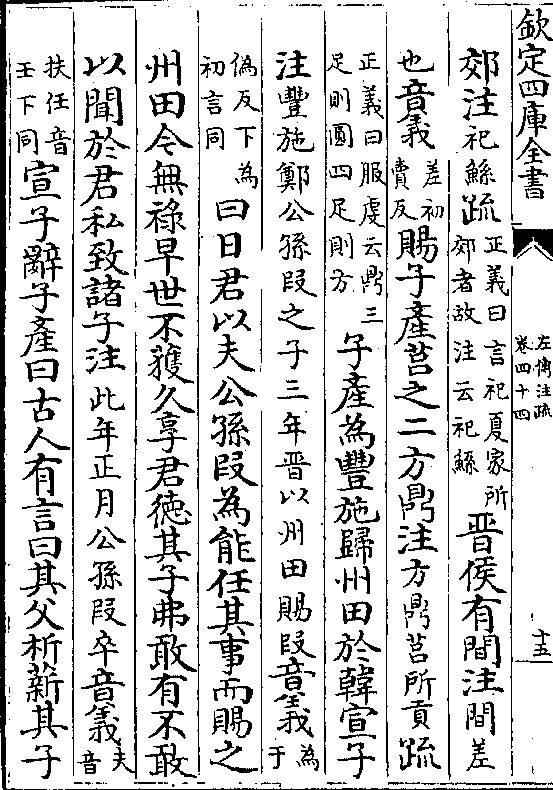 欽定四庫全書
左傳注疏
卷四十四
十五
郊注祀鯀疏正義曰言祀夏家所
郊者故注云祀鯀晉侯有間注間差
也音義差初
賣反賜子產莒之二方鼎注方鼎莒所貢疏
正義曰服虔云鼎三
足則圓四足則方子產為豐施歸州田於韓宣子
注豐施鄭公孫段之子三年晉以州田賜段音義為
于
偽反下為
初言同曰日君以夫公孫段為能任其事而賜之
州田今無祿早世不獲久享君德其子弗敢有不敢
以聞於君私致諸子注此年正月公孫段卒音義夫
音
扶任音
壬下同宣子辭子產曰古人有言曰其父析薪其子